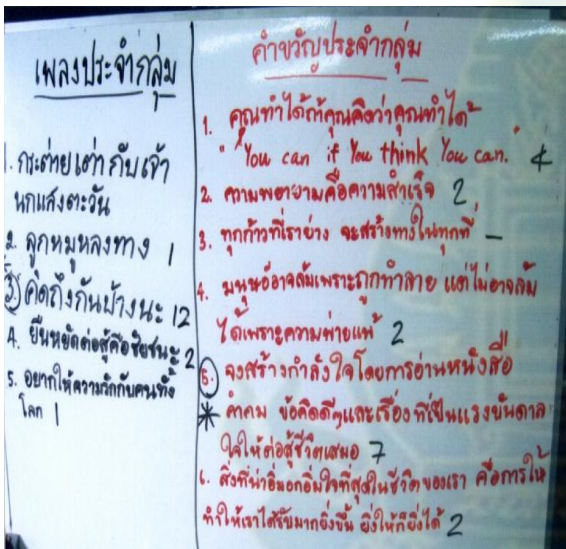 เพลงประจำกลุ่ม
1. กระต่ายเต่ากับเจ้า
นกแสงตะวัน
2. ลูกหมูหลงทาง 1
3 คิดถึงกันบ้างนะ 12
4. ยืนหยัดต่อสู้คือชัยชนะ 2
5. อยากให้ความรักกับคนทั้ง
โลก 1
คำขวัญประจำกลุ่ม
1. คุณทำได้ถ้าคุณคิดว่าคุณทำได้
" You can if You think You can. " 4
2. ความพยายามคือความสำเร็จ 2
3. ทุกก้าวที่เราย่าง จะสร้างทางในทุกที่ –
4. มนุษย์อาจล้มเพราะถูกทำลาย แต่ไม่อาจล้ม
ได้เพราะความพ่ายแพ้ 2
5. จงสร้างกำลังใจโดยการอ่านหนังสือ
* คำคม ข้อคิดดีๆและเรื่องที่เป็นแรงบันดาล
ใจให้ต่อสู้ชีวิตเสมอ 7
6. สิ่งที่น่าอิ่มอกอิ่มใจที่สุดในชีวิตของเรา คือการให้
ทำให้เราได้รับมากยิ่งขึ้น ยิ่งให้ก็ยิ่งได้ 2